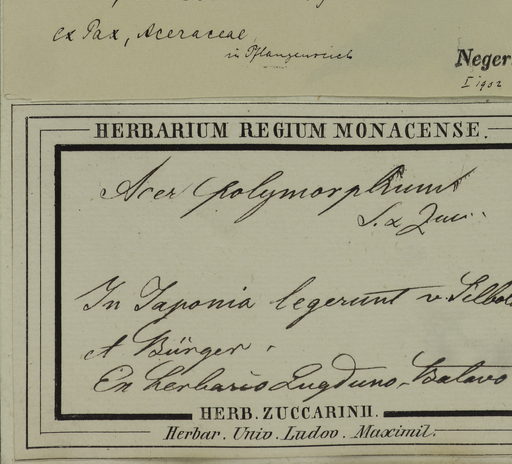 ex Pax, Aceraceae
in Pflanzenreich
Neger
I 1902
HERBARIUM REGIUM MONACENSE.
Acer polymorphum
S. & Zucc.
In Japonia legerunt v. Siebol
et Bürger.
Ex herbario Lugduno-Batavo
HERB. ZUCCARINII.
Herbar. Univ. Ludov. Maximil.